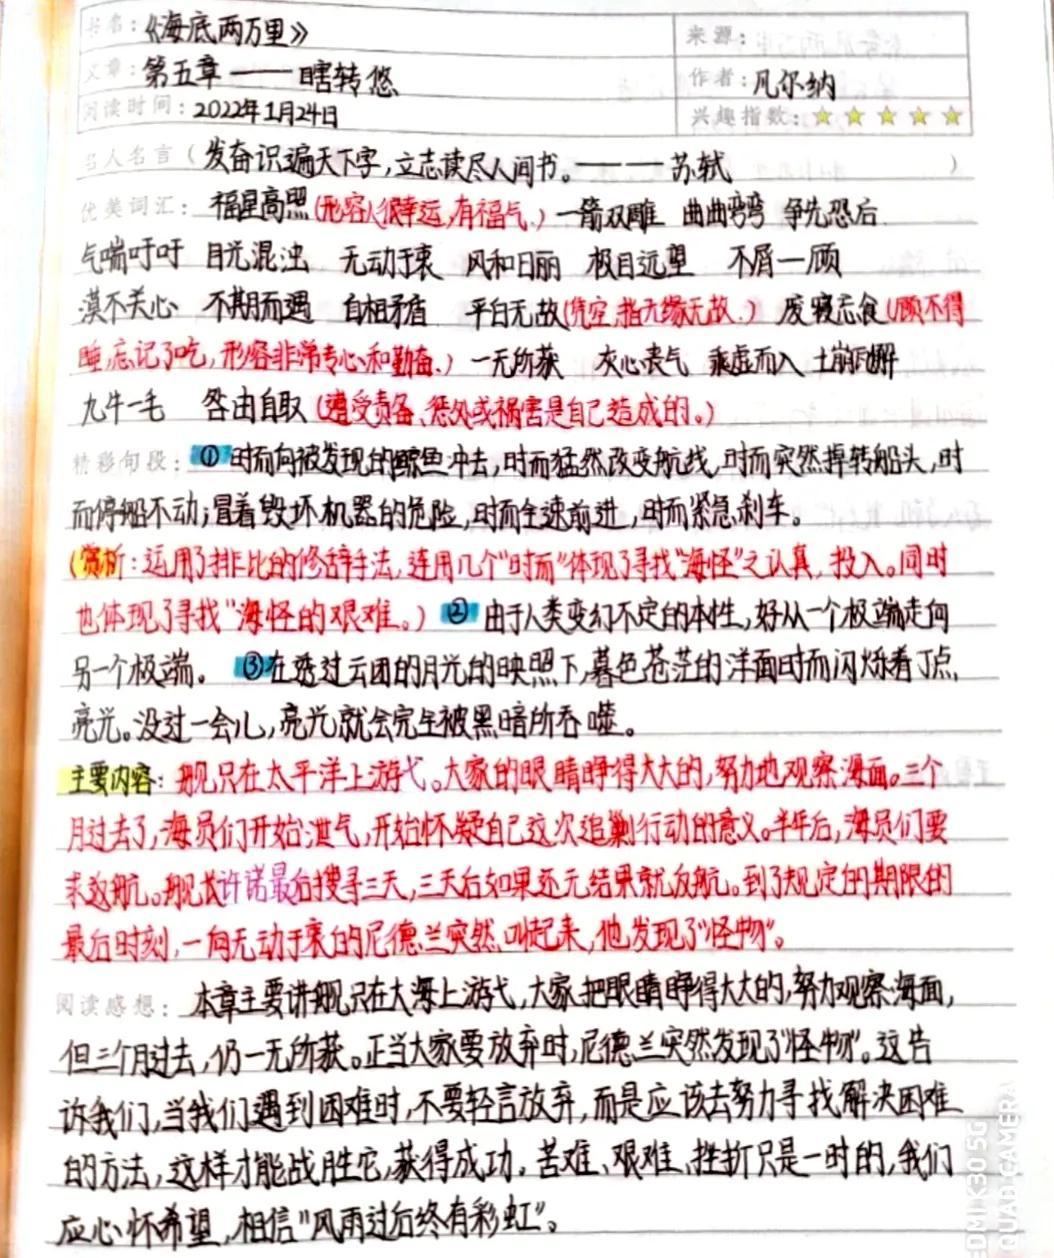 书名：《海底两万里》 来源：
文章：第五章——瞎转悠 作者：凡尔纳
阅读时间：2022年1月24日 兴趣指数：☆☆☆☆☆
名人名言（发奋识遍天下字，立志读尽人间书。———苏轼）
优美词汇：福星高照（形容人很幸运，有福气。）一箭双雕 曲曲弯弯 争先恐后
气喘吁吁 目光混浊 无动于衷 风和日丽 极目远望 不屑一顾
漠不关心 不期而遇 自相矛盾 平白无故（凭空，指无缘无故。） 废寝忘食（顾不得
睡，忘记了吃，形容非常专心和勤奋。） 一无所获 灰心丧气 乘虚而入 土崩瓦解
九牛一毛 咎由自取（遭受责备、惩处或祸害是自己造成的。）
精彩句段：①时而向被发现的鲸鱼冲去，时而猛然改变航线，时而突然掉转船头，时
而停船不动；冒着毁坏机器的危险，时而全速前进，时而紧急刹车。
（赏析：运用了排比的修辞手法，连用几个"时而"体现了寻找"海怪"之认真，投入。同时
也体现了寻找"海怪的艰难。）②由于人类变幻不定的本性，好从一个极端走向
另一个极端。 ③在透过云团的月光的映照下，暮色苍茫的洋面时而闪烁着丁点
亮光。没过一会儿，亮光就会完全被黑暗所吞噬。
主要内容：舰只在太平洋上游弋。大家的眼睛睁得大大的，努力地观察海面。三个
月过去了，海员们开始泄气，开始怀疑自己这次追剿行动的意义。半年后，海员们要
求返航。舰长许诺最后搜寻三天，三天后如果还无结果就返航。到了规定的期限的
最后时刻，一向无动于衷的尼德兰突然叫起来，他发现了"怪物"。
阅读感想：本章主要讲舰只在大海上游弋，大家把眼睛睁得大大的，努力观察海面，
但三个月过去，仍一无所获。正当大家要放弃时，尼德兰突然发现了"怪物"。这告
诉我们，当我们遇到困难时，不要轻言放弃，而是应该去努力寻找解决困难
的方法，这样才能战胜它，获得成功。苦难、艰难、挫折只是一时的，我们
应心怀希望，相信"风雨过后终有彩虹"。
DMI K30 5G
QUAD CAMERA